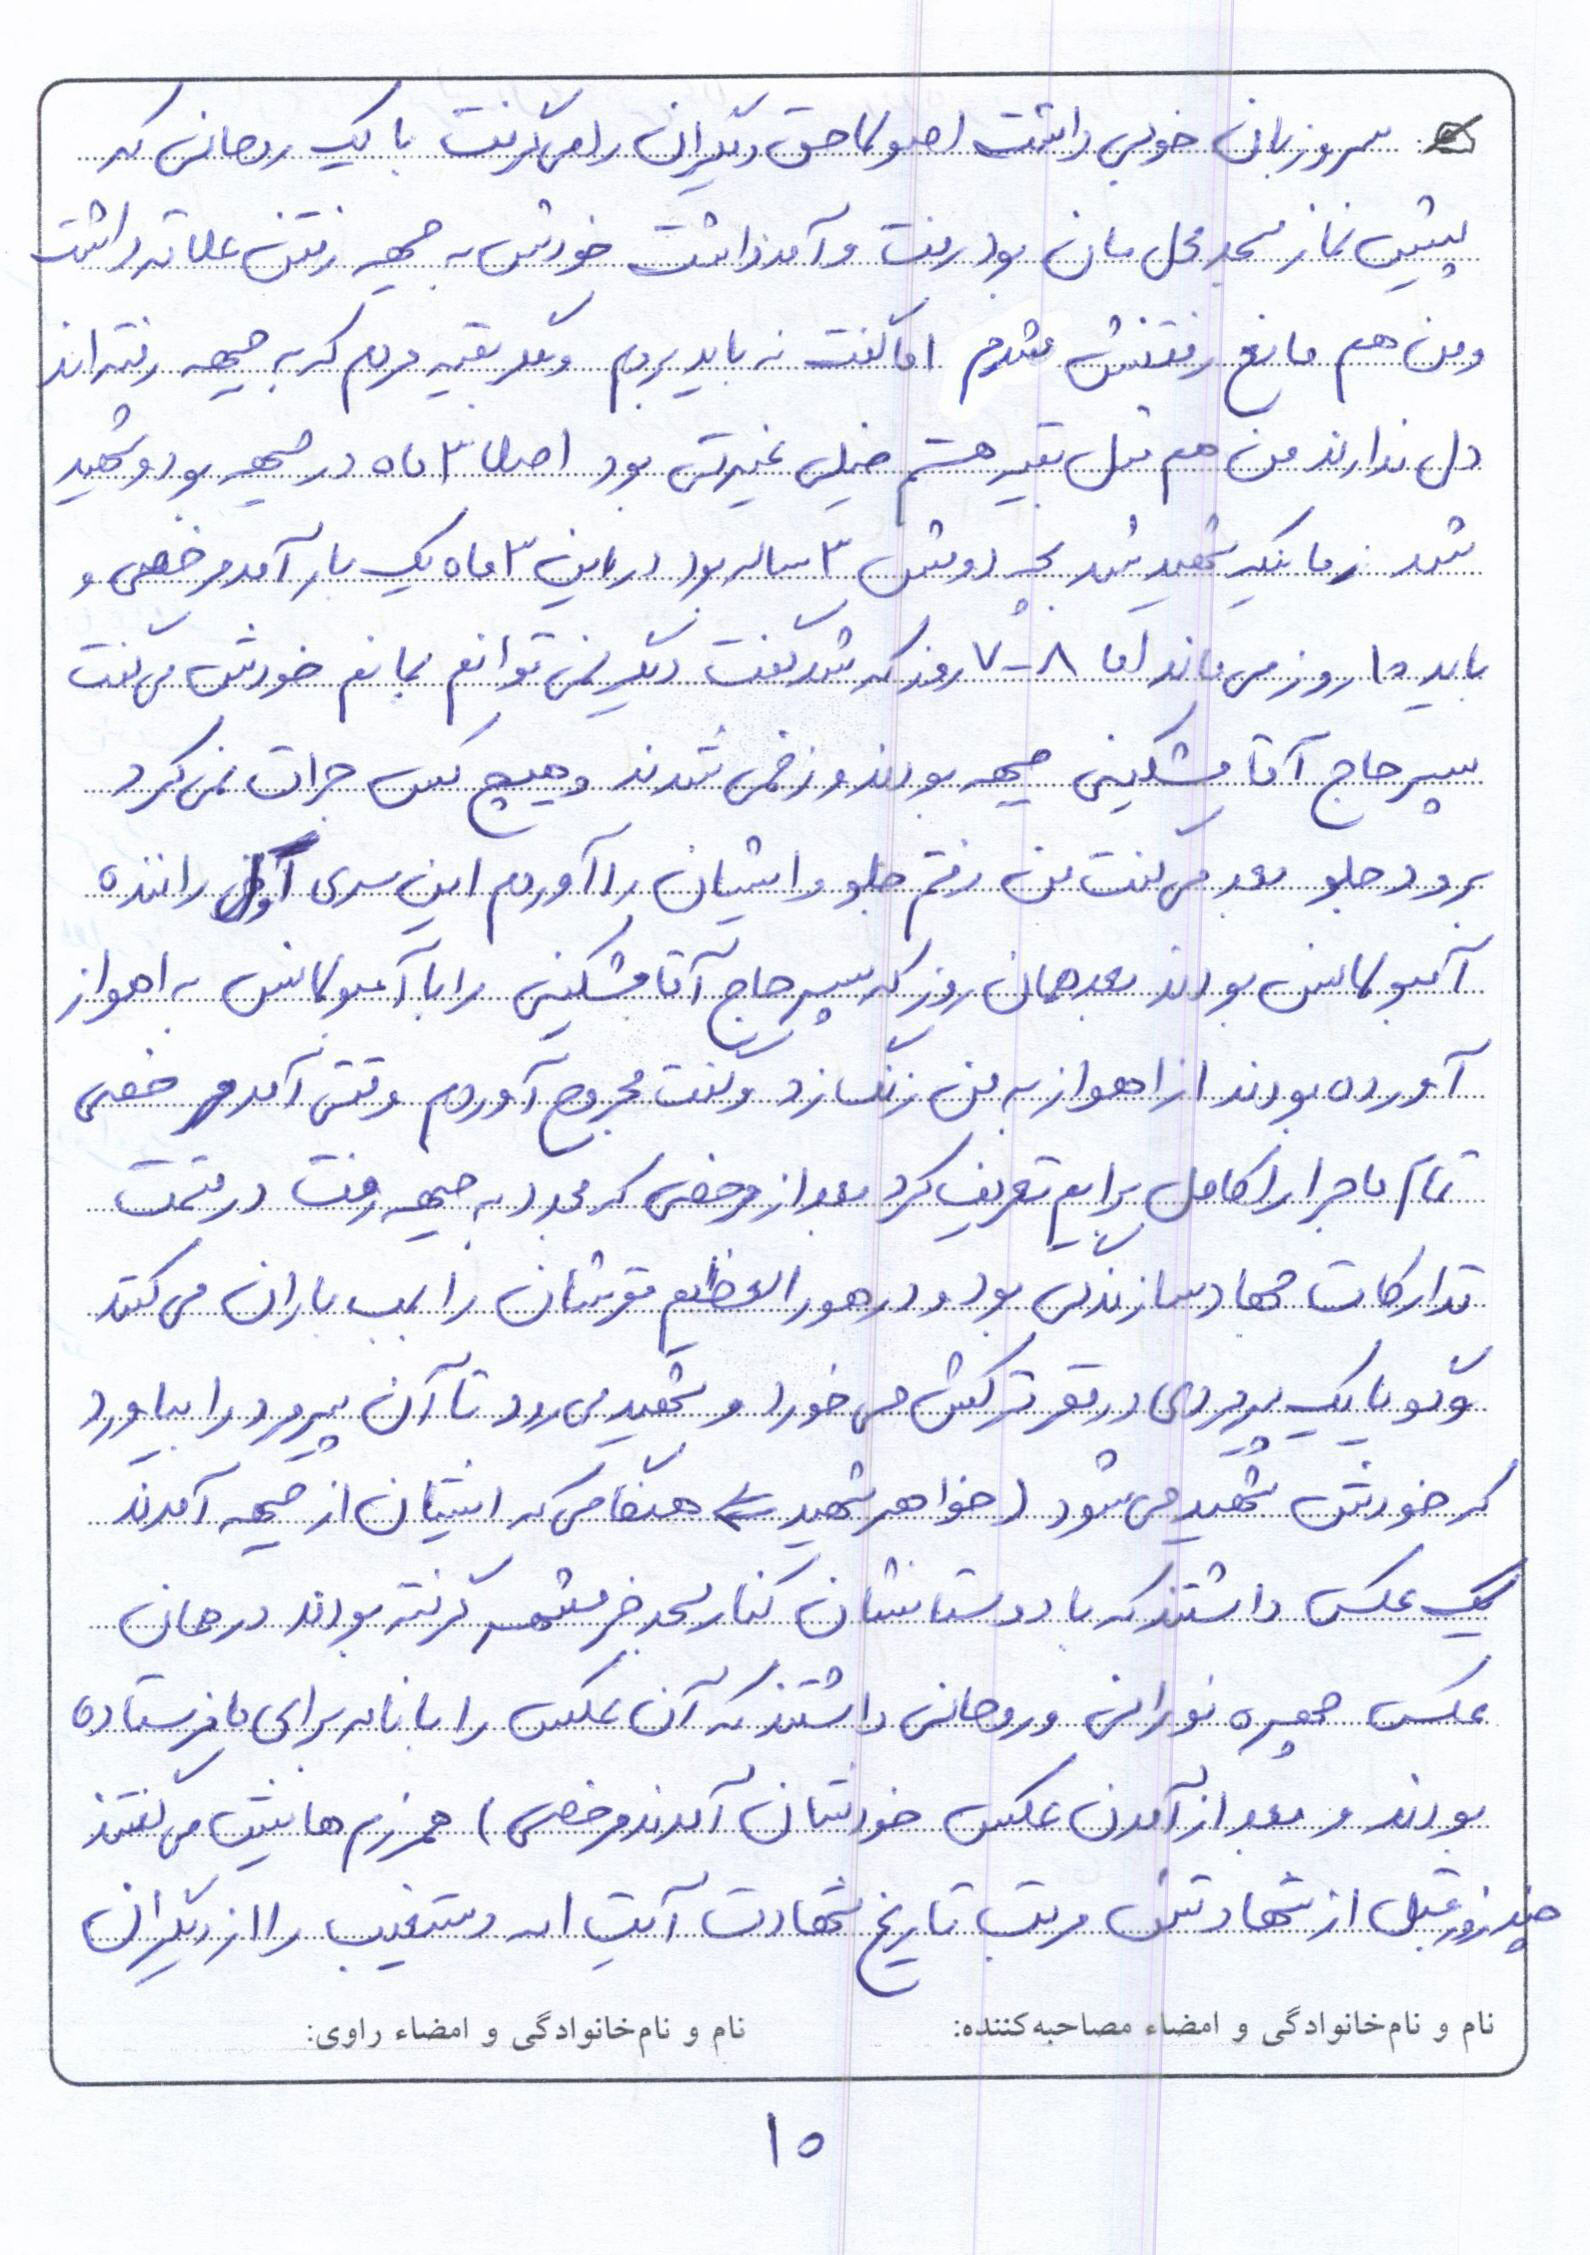 سروزبان خوبی داشت اصولا حق دیگران را می گرفت با یک روحانی که
پیش نماز مسجد محل مان بود رفت و آمد داشت خودش به جبهه رفتن علاقه داشت
و من هم مانع رفتنش نشدم اما گفت نه باید بروم و مگر بقیه مردم که به جبهه رفته اند
دل ندارند من هم مثل بقیه هستم خیلی غیرتی بود اصلا ۳ ماه در جبهه بود و شهید
شد زمانیکه شهید شد بچه دومش ۳ ساله بود در این ۳ ماه یک بار آمد مرخصی و
باید ۱۰ روز می ماند اما ۸-۷ روز که شد گفت دیگر نمی توانم بمانم خودش می گفت
پسر حاج آقا مشکینی جبهه بودند و زخمی شدند و هیچ کس جرات نمی کرد
برود جلو بعد می گفت من رفتم جلو و ایشان را آوردم این سری اول راننده
آمبولانس بودند بعد همان روز که پسر حاج آقا مشکینی را با آمبولانس به اهواز
آورده بودند از اهواز به من زنگ زد و گفت مجروح آوردم وقتی آمد مرخصی
تمام ماجرا را کامل برایم تعریف کرد بعد از مرخصی که مجدد به جبهه رفت در قسمت
تدارکات جهاد سازندگی بود و در هور العظیم مقرشان را بمب باران می کنند
و گویا یک پیرمردی در مقر ترکش می خورد و شهید می رود تا آن پیرمرد را بیاورد
که خودش شهید می شود (خواهر شهید ⇐ هنگامی که ایشان از جبهه آمدند
یک عکس داشتند که با دوستانشان کنار مسجد خرمشهر گرفته بودند در همان
عکس چهره نورانی و روحانی داشتند که آن عکس را با نامه برای ما فرستاده
بودند و بعد از آمدن عکس خودشان آمدند مرخصی) همرزم هایش می گفتند
چند روز قبل از شهادتش مرتب تاریخ شهادت آیت اله دستغیب را از دیگران
نام و نام‌خانوادگی و امضاء مصاحبه‌کننده: نام و نام‌خانوادگی و امضاء راوی:
۱۰